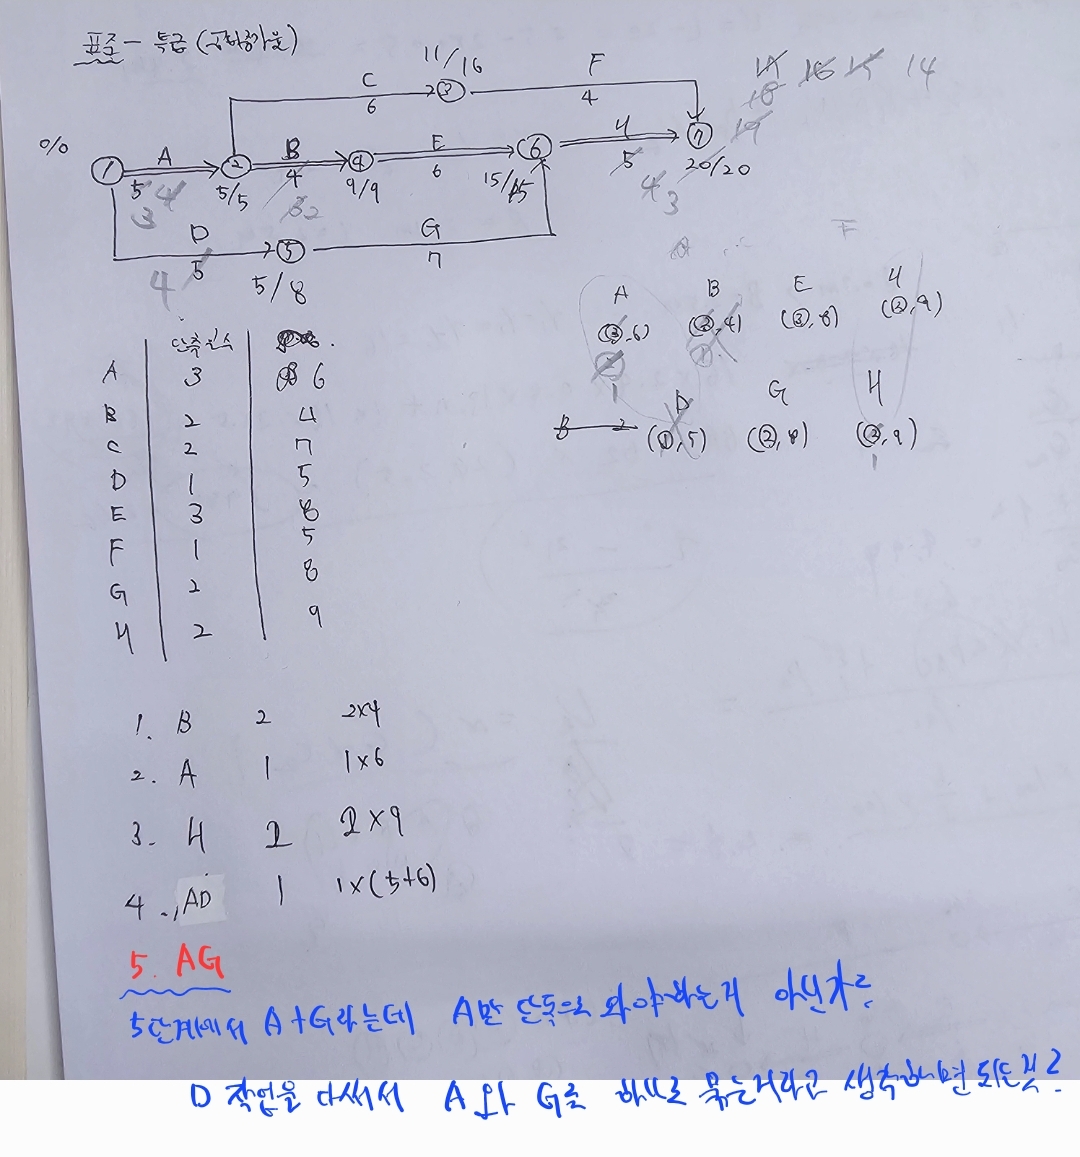 표준 - 특급 (공비증가율)
11/16
C
6
③
F
4
17 16 15 14
18
19
0/0
①
A
5 4
3
②
5/5
B
4
3 2
④
9/9
E
6
⑥
15/15
H
5
4 3
⑦
20/20
D
5
4
⑤
5/8
G
7
F
A B E H
(③,6) (②,4) (③,8) (②,9)
2 1
1
D G H
B 2 (①,5) (②,8) (②,9)
1
단축일수
A 3 6
B 2 4
C 2 7
D 1 5
E 3 8
F 1 5
G 2 8
H 2 9
1. B 2 2×4
2. A 1 1×6
3. H 2 2×9
4. AD 1 1×(5+6)
5. AG
5단계에서 A+G라는데 A만 단독으로 와야하는게 아닌가?
D 작업을 다써서 A와 G를 하나로 묶는거라고 생각하면 되는것?